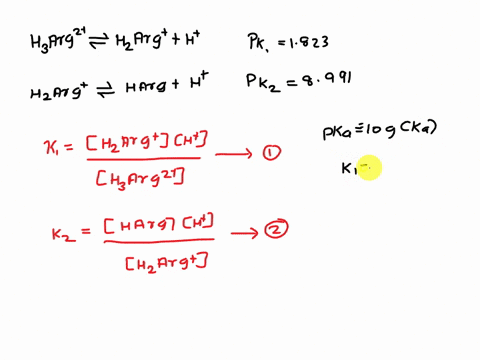 H₃Arg²⁺ ⇌ H₂Arg⁺ + H⁺    PK₁ = 1.823
H₂Arg⁺ ⇌ HArg + H⁺    PK₂ = 8.991
K₁ = [H₂Arg⁺][H⁺] / [H₃Arg²⁺] → ①
PKa = log(Ka)
K₁ =
K₂ = [HArg][H⁺] / [H₂Arg⁺] → ②